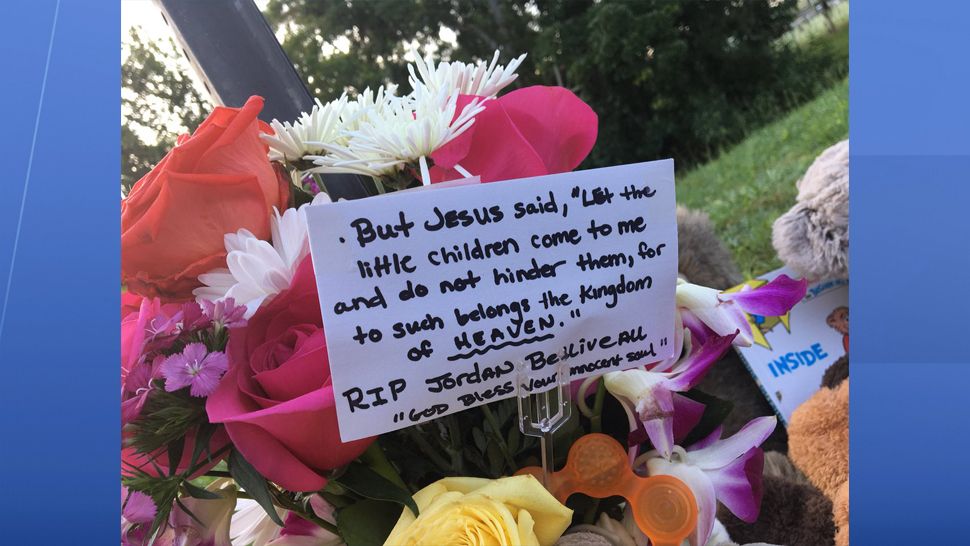 . But Jesus said, "Let the
little children come to me
and do not hinder them, for
to such belongs the Kingdom
of HEAVEN."
RIP Jordan Belliveau
"GOD Bless your innocent soul"
INSIDE